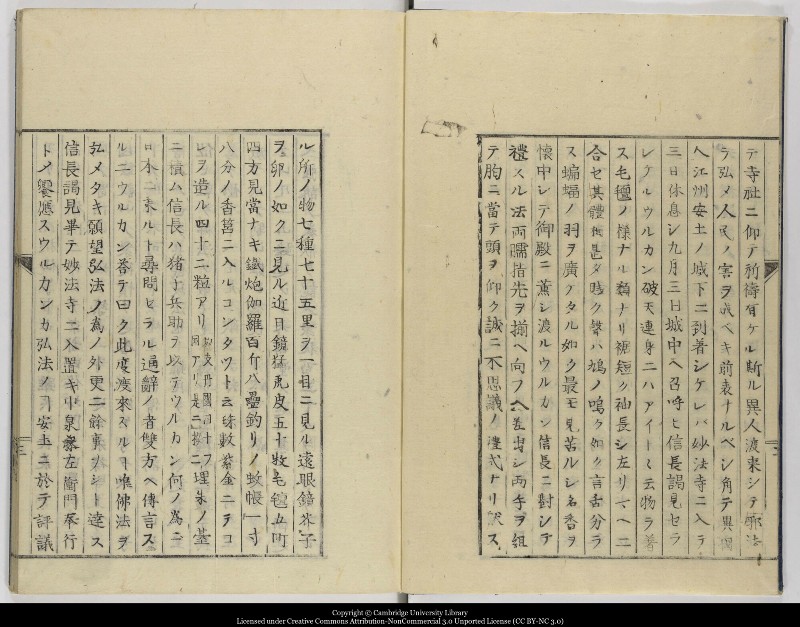 テ寺社ニ仰テ祈祷有ケル斯ル異人渡来シテ邪法
ヲ弘メ人民ノ害ヲ成ベキ前表ナルベシ角テ異國
人江州安土ノ城下ニ到着シケレバ妙法寺ニ入テ
三日休息シ九月三日城中ヘ召呼ヒ信長謁見セラ
レケルウルカン破天連身ニハアイートミ云物ヲ着
ス毛氈ノ様ナル類ナリ裾短ク袖長シ左リマヘニ
合セ其體甚ダ賎ク聲ハ鳩ノ鳴ク如ク言舌分ラ
ス蝙蝠ノ羽ヲ廣ケタル如ク最モ見苦ルシ名香ヲ
懐中シテ御殿ニ薫シ渡ルウルカン信長ニ對シテ
禮スル法両儒指光ヲ揃ヘ向フヘ差出シ両手ヲ組
テ胸ニ當テ頭ヲ仰ク誠ニ不思議ノ禮式ナリ獻ス
三
ル所ノ物七種七十五里ヲ一目ニ見ル遠眼鏡芥子
ヲ卵ノ如クニ見ル近目鏡猛虎皮五十枚毛氈五町
四方見當ナキ鐵炮伽羅百斤八疊釣リノ蚊帳一寸
八分ノ香筥ニ入ルコンタツト云珠數紫金ニテコ
レヲ造ル四十二粒アリ
埋朱ノ臺
ニ積ム信長ハ猪子兵助ヲ以テウルカン何ノ為ニ
日本ニ来ルト尋問セラル通辭ノ者雙方ヘ傳言ス
ルニウルカン答テ曰ク此度渡來スルヿ唯佛法ヲ
弘メタキ願望弘法ノ為ノ外更ニ餘事ナシト達ス
信長謁見畢テ妙法寺ニ入置キ中泉
左衛門奉行
トメ饗應スウルカンカ弘法ノヿ安土ニ於テ評議
三
Copyright © Cambridge University Library
Licensed under Creative Commons Attribution-NonCommercial 3.0 Unported License (CC BY-NC 3.0)